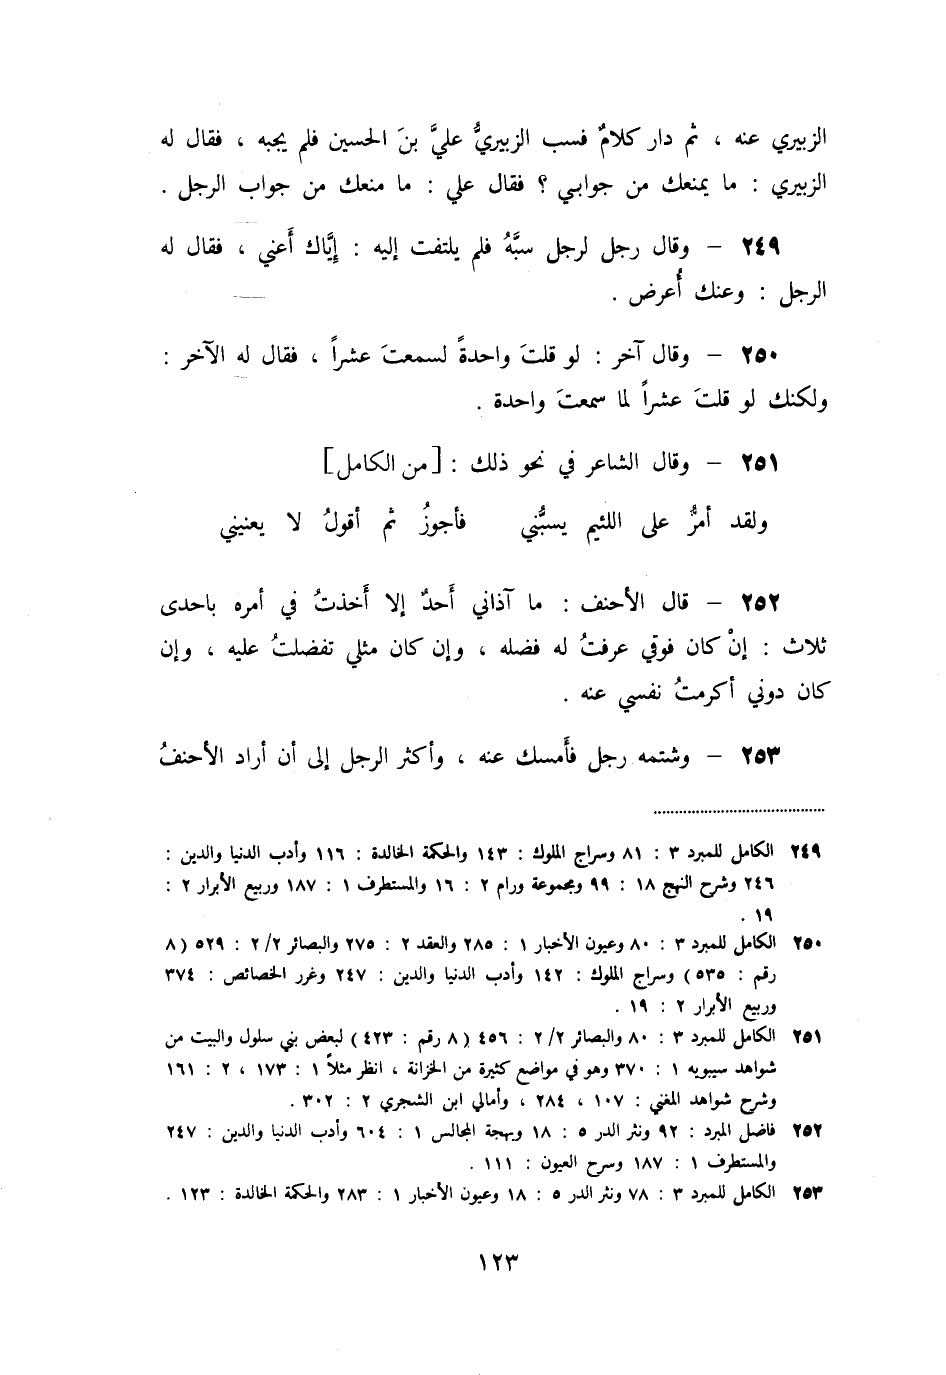 الزبيري عنه ، ثم دار كلامٌ فسب الزبيريُّ عليَّ بنَ الحسين فلم يجبه ، فقال له
الزبيري : ما يمنعك من جوابي ؟ فقال علي : ما منعك من جواب الرجل .
٢٤٩ – وقال رجل لرجل سبَّهُ فلم يلتفت إليه : إيَّاك أَعني ، فقال له
الرجل : وعنك أُعرض .
٢٥٠ – وقال آخر : لو قلتَ واحدةً لسمعتَ عشراً ، فقال له الآخر :
ولكنك لو قلتَ عشراً لما سمعتَ واحدة .
٢٥١ – وقال الشاعر في نحو ذلك : [من الكامل]
ولقد أمرُّ على اللئيم يسبُّني فأجوزُ ثم أقولُ لا يعنيني
٢٥٢ – قال الأحنف : ما آذاني أَحدٌ إلا أَخذتُ في أمره باحدى
ثلاث : إنْ كان فوقي عرفتُ له فضله ، وإن كان مثلي تفضلتُ عليه ، وإن
كان دوني أكرمتُ نفسي عنه .
٢٥٣ – وشتمه رجل فأَمسك عنه ، وأكثر الرجل إلى أن أراد الأحنفُ
٢٤٩ الكامل للمبرد ٣ : ٨١ وسراج الملوك : ١٤٣ والحكمة الخالدة : ١١٦ وأدب الدنيا والدين :
٢٤٦ وشرح النهج ١٨ : ٩٩ ومجموعة ورام ٢ : ١٦ والمستطرف ١ : ١٨٧ وربيع الأبرار ٢ :
١٩ .
٢٥٠ الكامل للمبرد ٣ : ٨٠ وعيون الأخبار ١ : ٢٨٥ والعقد ٢ : ٢٧٥ والبصائر ٢/٢ : ٥٢٩ (٨
رقم : ٥٣٥) وسراج الملوك : ١٤٢ وأدب الدنيا والدين : ٢٤٧ وغرر الخصائص : ٣٧٤
وربيع الأبرار ٢ : ١٩ .
٢٥١ الكامل للمبرد ٣ : ٨٠ والبصائر ٢/٢ : ٤٥٦ (٨ رقم : ٤٢٣) لبعض بني سلول والبيت من
شواهد سيبويه ١ : ٣٧٠ وهو في مواضع كثيرة من الخزانة ، انظر مثلاً ١ : ١٧٣ ، ٢ : ١٦١
وشرح شواهد المغني : ١٠٧ ، ٢٨٤ ، وأمالي ابن الشجري ٢ : ٣٠٢ .
٢٥٢ فاضل المبرد : ٩٢ ونثر الدر ٥ : ١٨ وبهجة المجالس ١ : ٦٠٤ وأدب الدنيا والدين : ٢٤٧
والمستطرف ١ : ١٨٧ وسرح العيون : ١١١ .
٢٥٣ الكامل للمبرد ٣ : ٧٨ ونثر الدر ٥ : ١٨ وعيون الأخبار ١ : ٢٨٣ والحكمة الخالدة : ١٢٣ .
١٢٣